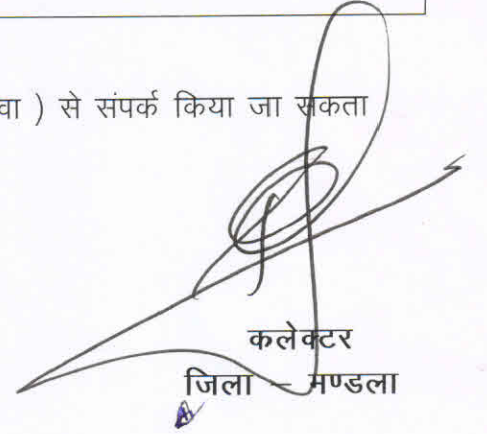 वा ) से संपर्क किया जा सकता
कलेक्टर
जिला – मण्डला